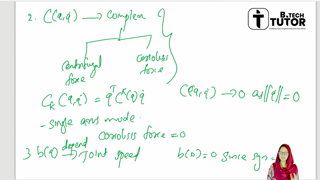 B.TECH
TUTOR
2. C(q,q̇) → Complex
centrifugal force
coriolis force
C_k(q,q̇) = q̇ᵀ Cᵏ(q) q̇
C(q,q̇) → 0 as ||q̇|| = 0
- single axis mode.
coriolis force = 0
3 b(q̇) depend → Joint speed
b(0) = 0 since sgn